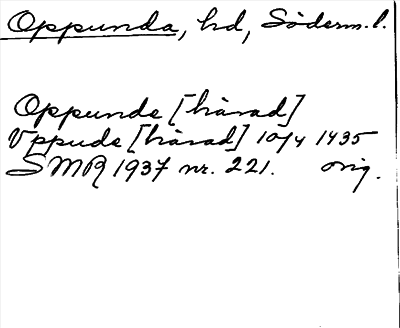 Oppunda, hd, Söderm. l.
Oppunde [härad]
Vppude [härad] 10/4 1435
SMR 1937 nr. 221. orig.